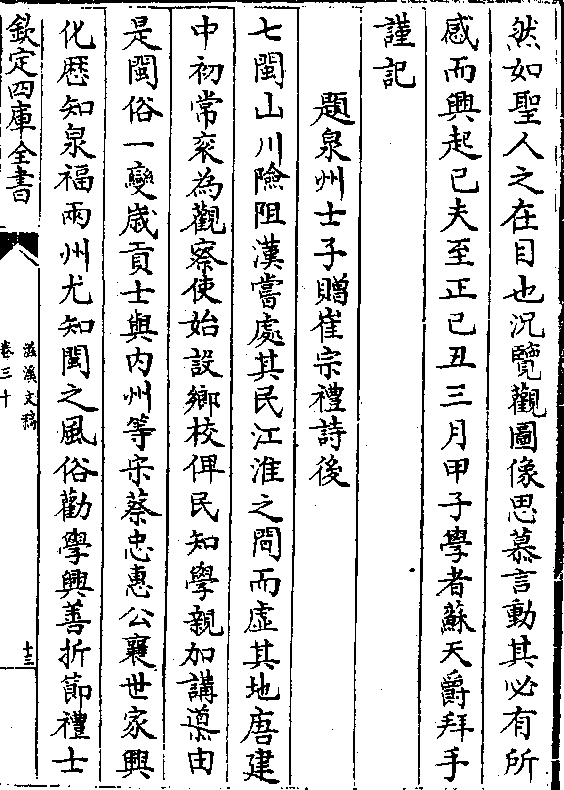 然如聖人之在目也況覽觀圖像思慕言動其必有所
感而興起已夫至正己丑三月甲子學者蘇天爵拜手
謹記
題泉州士子贈崔宗禮詩後
七閩山川險阻漢嘗處其民江淮之間而虛其地唐建
中初常袞為觀察使始設鄉校俾民知學親加講導由
是閩俗一變歲貢士與内州等宋蔡忠惠公襄世家興
化歴知泉福兩州尤知閩之風俗勸學興善折節禮士
欽定四庫全書
滋溪文稿
卷三十
十三